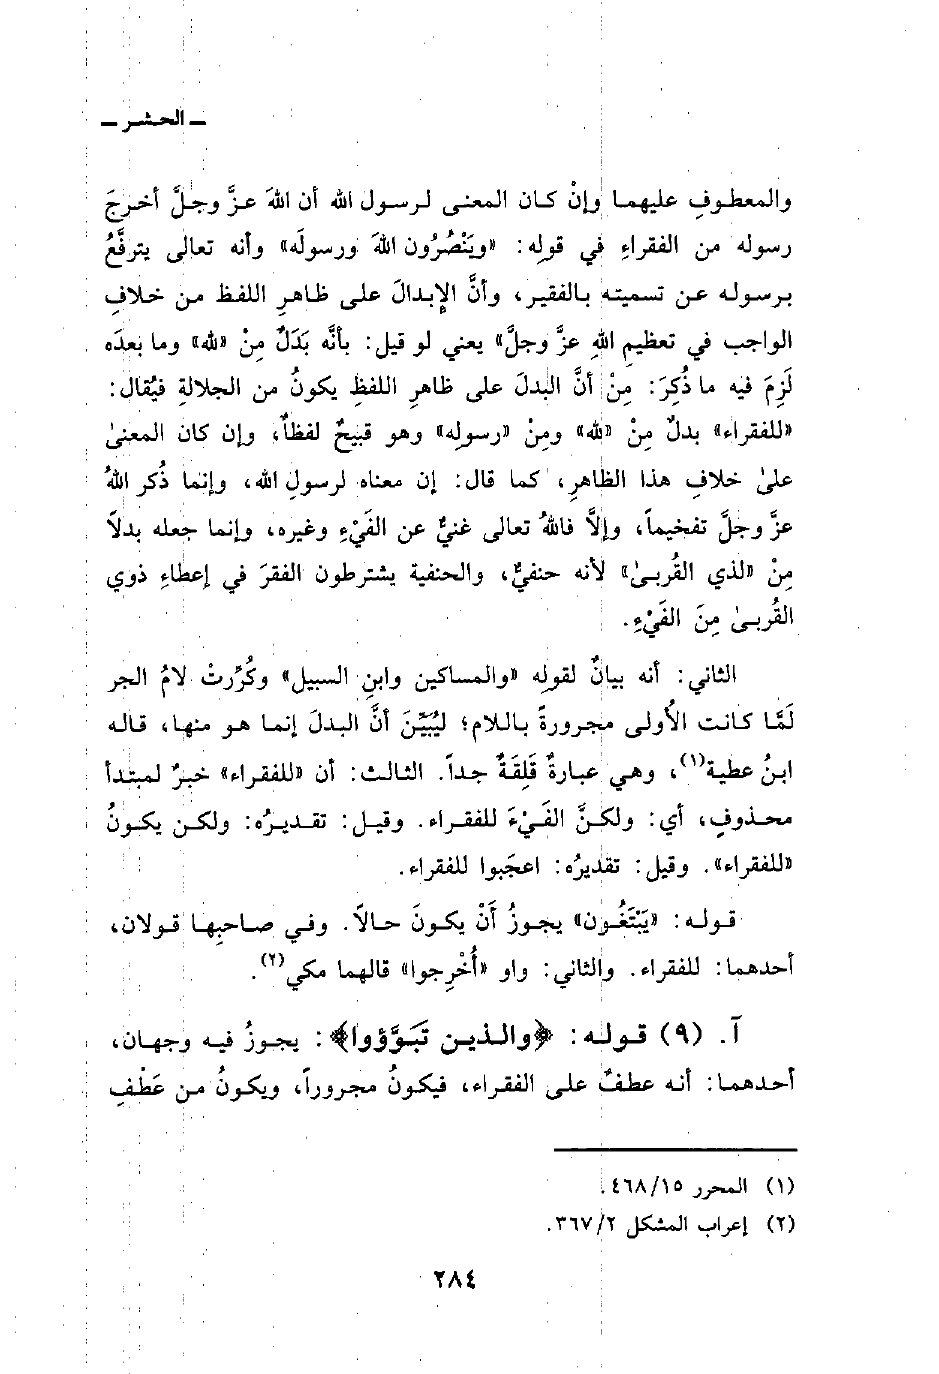 ـ الحشر ـ
والمعطوفِ عليهما وإنْ كان المعنى لرسول الله أن اللهَ عزَّ وجلَّ أخرجَ
رسوله من الفقراءِ في قوله: «ويَنْصُرُون اللهَ ورسولَه» وأنه تعالى يترفَّعُ
برسوله عن تسميته بالفقير، وأنَّ الإِبدالَ على ظاهرِ اللفظ من خلافِ
الواجب في تعظيمِ اللهِ عزَّ وجلَّ» يعني لو قيل: بأنَّه بَدَلٌ مِنْ «لله» وما بعدَه
لَزِمَ فيه ما ذُكِرَ: مِنْ أنَّ البدلَ على ظاهرِ اللفظِ يكونُ من الجلالةِ فيُقال:
«للفقراء» بدلٌ مِنْ «لله» ومِنْ «رسوله» وهو قبيحٌ لفظاً، وإن كان المعنىٰ
علىٰ خلافِ هذا الظاهرِ، كما قال: إن معناه لرسولِ الله، وإنما ذُكر اللهُ
عزَّ وجلَّ تفخيماً، وإلَّا فاللهُ تعالى غنيٌّ عن الفَيْءِ وغيره، وإنما جعله بدلاً
مِنْ «لذي القُربىٰ» لأنه حنفيٌّ، والحنفية يشترطون الفقرَ في إعطاءِ ذوي
القُربىٰ مِنَ الفَيْءِ.
الثاني: أنه بيانٌ لقولِه «والمساكين وابنِ السبيل» وكُرِّرتْ لامُ الجر
لَمَّا كانت الأُولى مجرورةً باللام؛ ليُبَيِّنَ أنَّ البدلَ إنما هو منها، قاله
ابنُ عطية(١)، وهي عبارةٌ قَلِقَةٌ جداً. الثالث: أن «للفقراء» خبرٌ لمبتدأ
محذوفٍ، أي: ولكنَّ الفَيْءَ للفقراء. وقيل: تقديرُه: ولكن يكونُ
«للفقراء». وقيل: تقديرُه: اعجَبوا للفقراء.
قوله: «يَبْتَغُون» يجوزُ أَنْ يكونَ حالاً. وفي صاحبِها قولان،
أحدهما: للفقراء. والثاني: واو «أُخْرِجوا» قالهما مكي(٢).
آ. (٩) قوله: ﴿والذين تَبَوَّؤوا﴾: يجوزُ فيه وجهان،
أحدهما: أنه عطفٌ على الفقراء، فيكونُ مجروراً، ويكونُ من عَطْفِ
(١) المحرر ٤٦٨/١٥.
(٢) إعراب المشكل ٣٦٧/٢.
٢٨٤